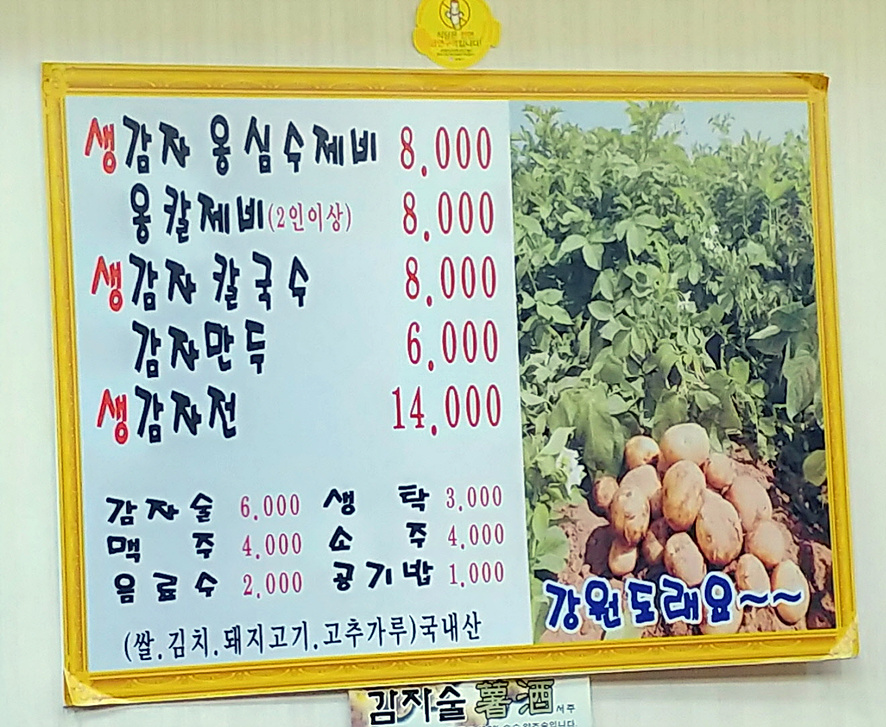 생감자 옹심수제비 8.000
옹칼제비(2인이상) 8.000
생감자 칼국수 8.000
감자만두 6.000
생감자전 14.000
감자술 6.000 생 탁 3.000
맥 주 4.000 소 주 4.000
음료수 2.000 공기밥 1.000
(쌀.김치.돼지고기.고추가루)국내산
강원도래요~~
감자술 薯酒 서주